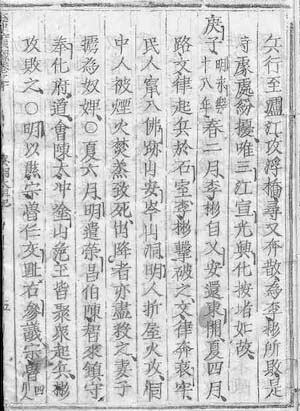 兵行至瀘江攻浮橋尋又奔散為李彬所敗是
時處處紛擾唯三江宣光興化按堵如故
庚子明永樂十八年春二月李彬自乂安還東關夏四月
路文律起兵於石室李彬擊破之文律奔哀牢
民人竄入佛跡山安岑山洞明人折屋火攻洞
中人被煙火蒸致死出降者亦盡殺之妻子
擄為奴婢○夏六月明遣榮昌伯陳智來鎮守
奉化府道會陳太冲塗山范玉皆聚衆起兵彬
攻敗之○明以熊宗魯任交趾右參議宗魯